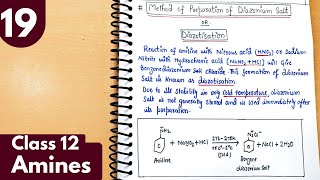 19
Class 12
Amines
# Method of Preparation of Diazonium Salt
OR
Diazotisation
Reaction of aniline with Nitrous acid (HNO₂) or Sodium
Nitrite with Hydrochloric acid [NaNO₂ + HCl] will Give
Benzenediazonium salt chloride. This formation of diazonium
Salt is known as diazotisation.
Due to its stability in only cold temperature, diazonium
Salt is not generally stored and is used immediately after
its preparation.
NH₂
Aniline
+ NaNO₂ + HCl
273-278K
(0°C-5°C)
N₂Cl⁻
+ NaCl + 2H₂O
Benzene
diazonium salt